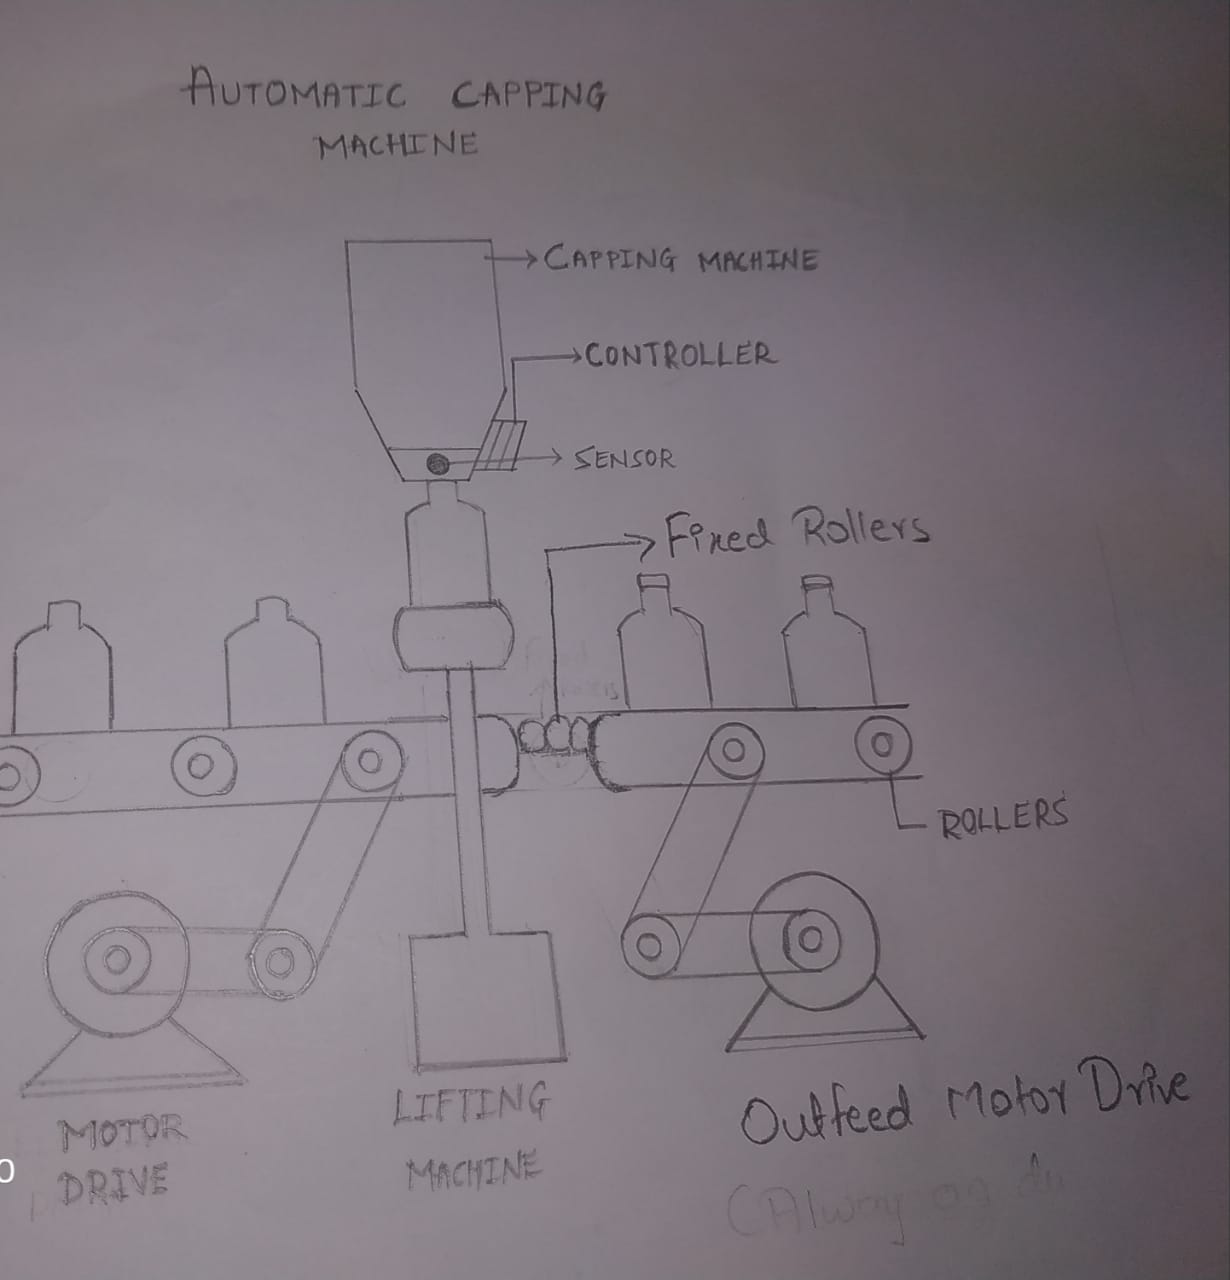 AUTOMATIC CAPPING
MACHINE
CAPPING MACHINE
CONTROLLER
SENSOR
Fixed Rollers
ROLLERS
MOTOR
DRIVE
LIFTING
MACHINE
Outfeed Motor Drive
(Alway on